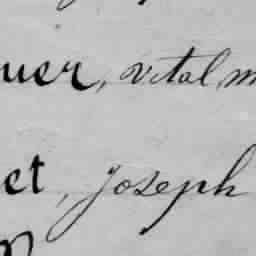 uer, Vital, m
et, Joseph